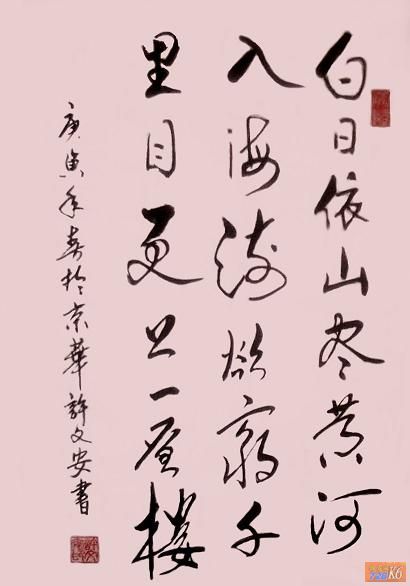 白日依山尽黄河
入海流欲窮千
里目更上一層樓
庚寅年春於京華許文安書
K6